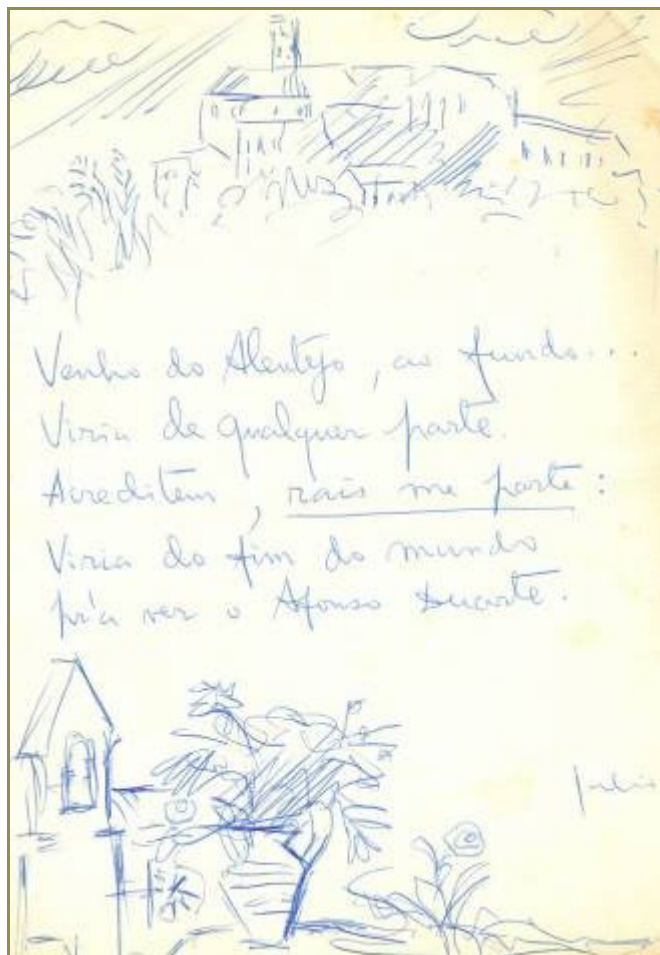 Venho do Alentejo, ao fundo...
Viria de qualquer parte.
Acreditem, rais me parte:
Viria do fim do mundo
pra ver o Afonso Duarte.